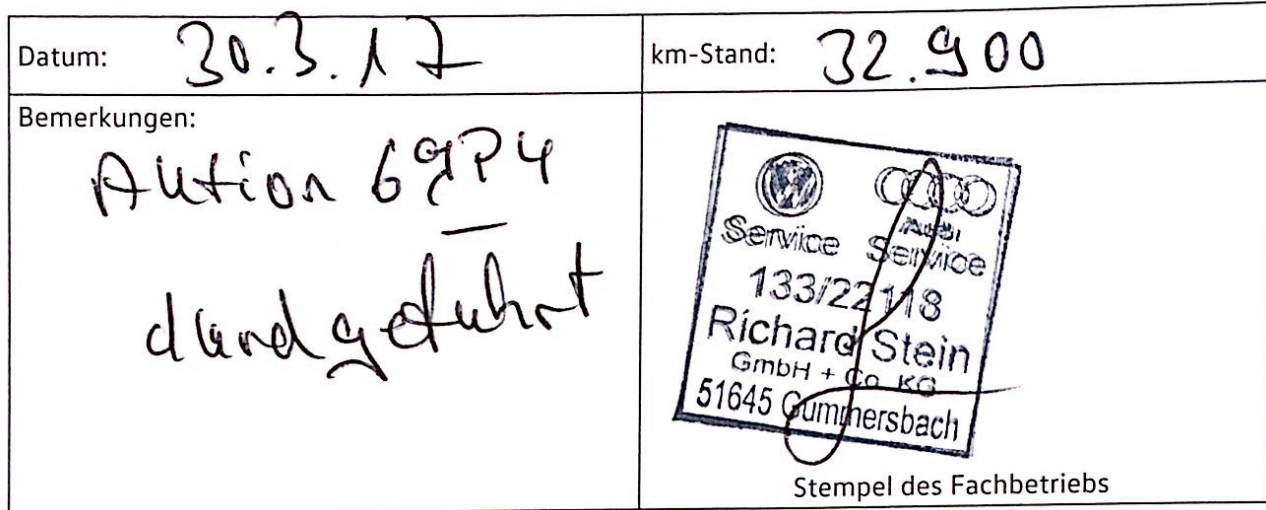 Datum: 30.3.17
km-Stand: 32.900
Bemerkungen:
Aktion 69P4
durchgeführt
Audi
Service Service
133/22118
Richard Stein
GmbH + Co. KG
51645 Gummersbach
Stempel des Fachbetriebs